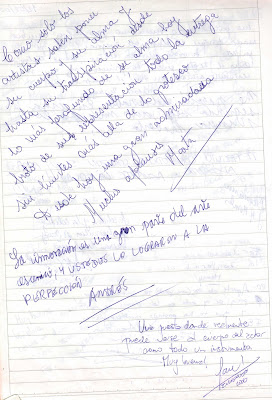 Como solo los
artistas saben poner
su cuerpo y su alma y
hasta su transpiración, desde
lo más profundo de su alma, hoy
trató de esta representación toda la entrega
sin límites más allá de lo grotesco
hoy una gran
Muchos aplausos
Marta
La innovación es una gran parte del arte
escénico, y ustedes lo lograron a la
perfección
Andrés
Una puesta donde realmente
puede verse al cuerpo del actor
como todo un instrumento
Muy bueno!